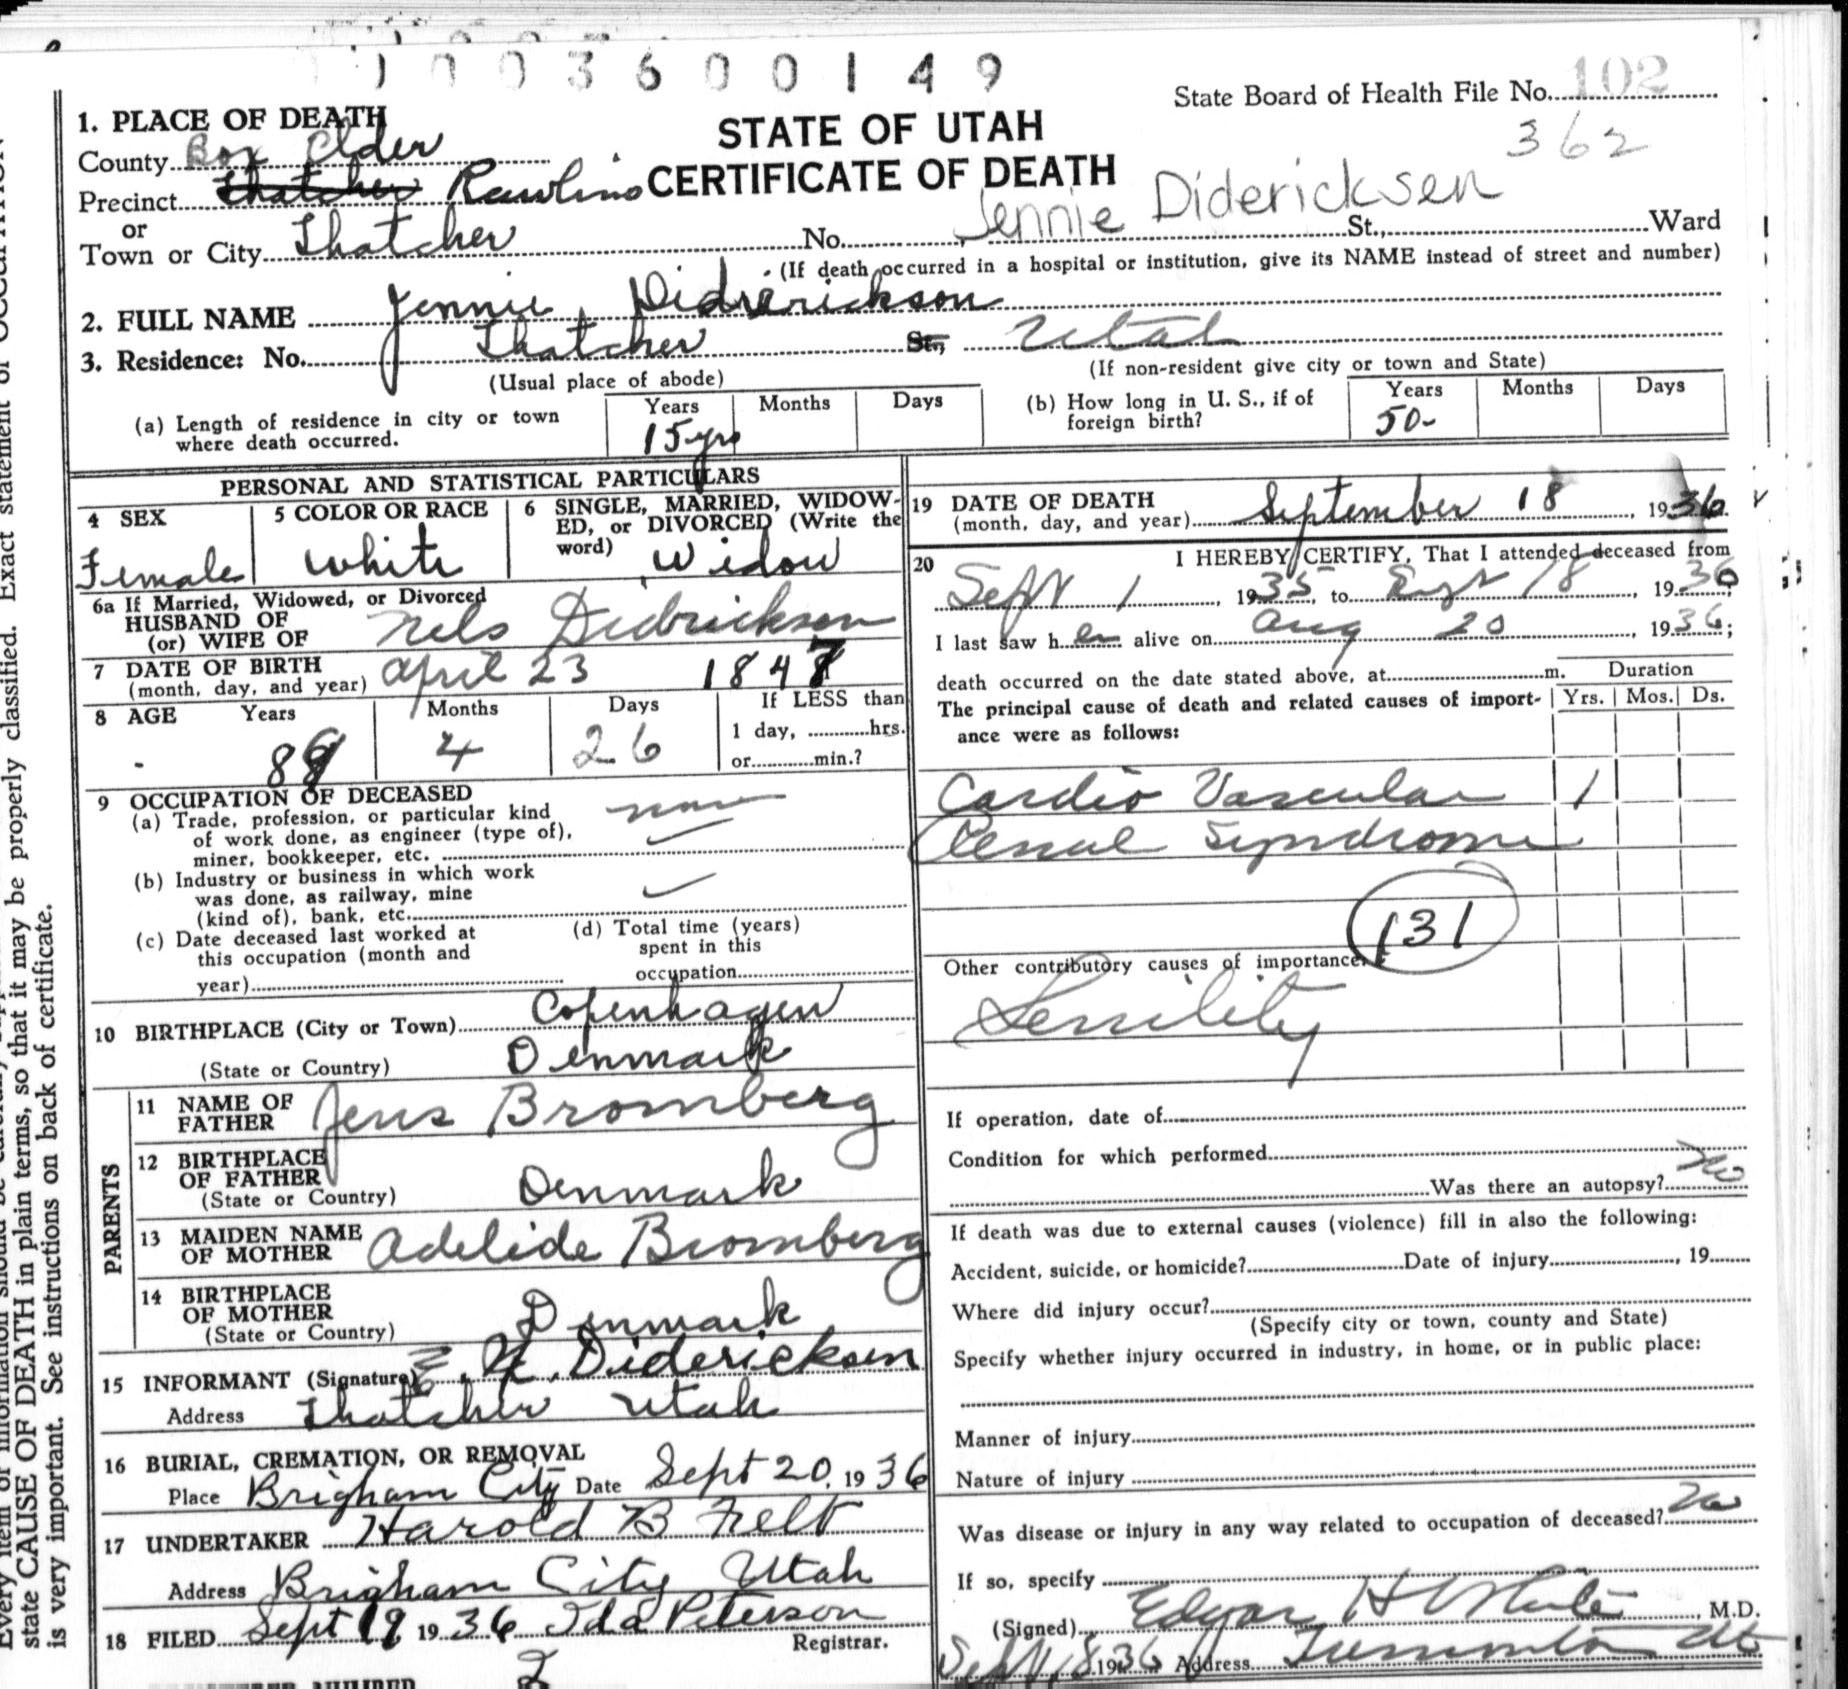 1003600149
State Board of Health File No. 102
362
1. PLACE OF DEATH
STATE OF UTAH
CERTIFICATE OF DEATH
County Box Elder
Precinct Thatcher Rawlins
Jennie Didericksen
or
Town or City Thatcher No. St., Ward
(If death occurred in a hospital or institution, give its NAME instead of street and number)
2. FULL NAME Jennie Didrerickson
3. Residence: No. Thatcher St., Utah
(Usual place of abode) (If non-resident give city or town and State)
(a) Length of residence in city or town where death occurred. Years 15 yrs Months Days
(b) How long in U. S., if of foreign birth? Years 50- Months Days
PERSONAL AND STATISTICAL PARTICULARS
4 SEX Female
5 COLOR OR RACE White
6 SINGLE, MARRIED, WIDOW-
ED, or DIVORCED (Write the
word) Widow
6a If Married, Widowed, or Divorced
HUSBAND OF
(or) WIFE OF Nels Didrickson
7 DATE OF BIRTH
(month, day, and year) April 23 1847
8 AGE Years 89 Months 4 Days 26 If LESS than
1 day, hrs.
or min.?
9 OCCUPATION OF DECEASED
(a) Trade, profession, or particular kind
of work done, as engineer (type of),
miner, bookkeeper, etc. none
(b) Industry or business in which work
was done, as railway, mine
(kind of), bank, etc.
(c) Date deceased last worked at
this occupation (month and
year)
(d) Total time (years)
spent in this
occupation
10 BIRTHPLACE (City or Town) Copenhagen
(State or Country) Denmark
PARENTS
11 NAME OF
FATHER Jens Bromberg
12 BIRTHPLACE
OF FATHER
(State or Country) Denmark
13 MAIDEN NAME
OF MOTHER Adelide Bromberg
14 BIRTHPLACE
OF MOTHER
(State or Country) Denmark
15 INFORMANT (Signature) E. N. Didericksen
Address Thatcher Utah
16 BURIAL, CREMATION, OR REMOVAL
Place Brigham City Date Sept 20, 1936
17 UNDERTAKER Harold B Felt
Address Brigham City Utah
18 FILED Sept 19 1936 Ida Peterson
Registrar.
19 DATE OF DEATH
(month, day, and year) September 18, 1936
20 I HEREBY CERTIFY, That I attended deceased from
Sept 1, 1935, to Sept 18, 1936;
I last saw her alive on Aug 20, 1936;
death occurred on the date stated above, at m.
Duration
The principal cause of death and related causes of import-
ance were as follows:
Yrs. Mos. Ds.
Cardio Vascular 1
Renal Syndrome
131
Other contributory causes of importance:
Senility
If operation, date of
Condition for which performed
Was there an autopsy? No
If death was due to external causes (violence) fill in also the following:
Accident, suicide, or homicide? Date of injury, 19
Where did injury occur?
(Specify city or town, county and State)
Specify whether injury occurred in industry, in home, or in public place:
Manner of injury
Nature of injury
Was disease or injury in any way related to occupation of deceased? No
If so, specify
(Signed) Edgar H White, M.D.
Sept 18 1936 Address Tremonton Ut
state CAUSE OF DEATH in plain terms, so that it may be properly classified. Exact statement of
is very important. See instructions on back of certificate.